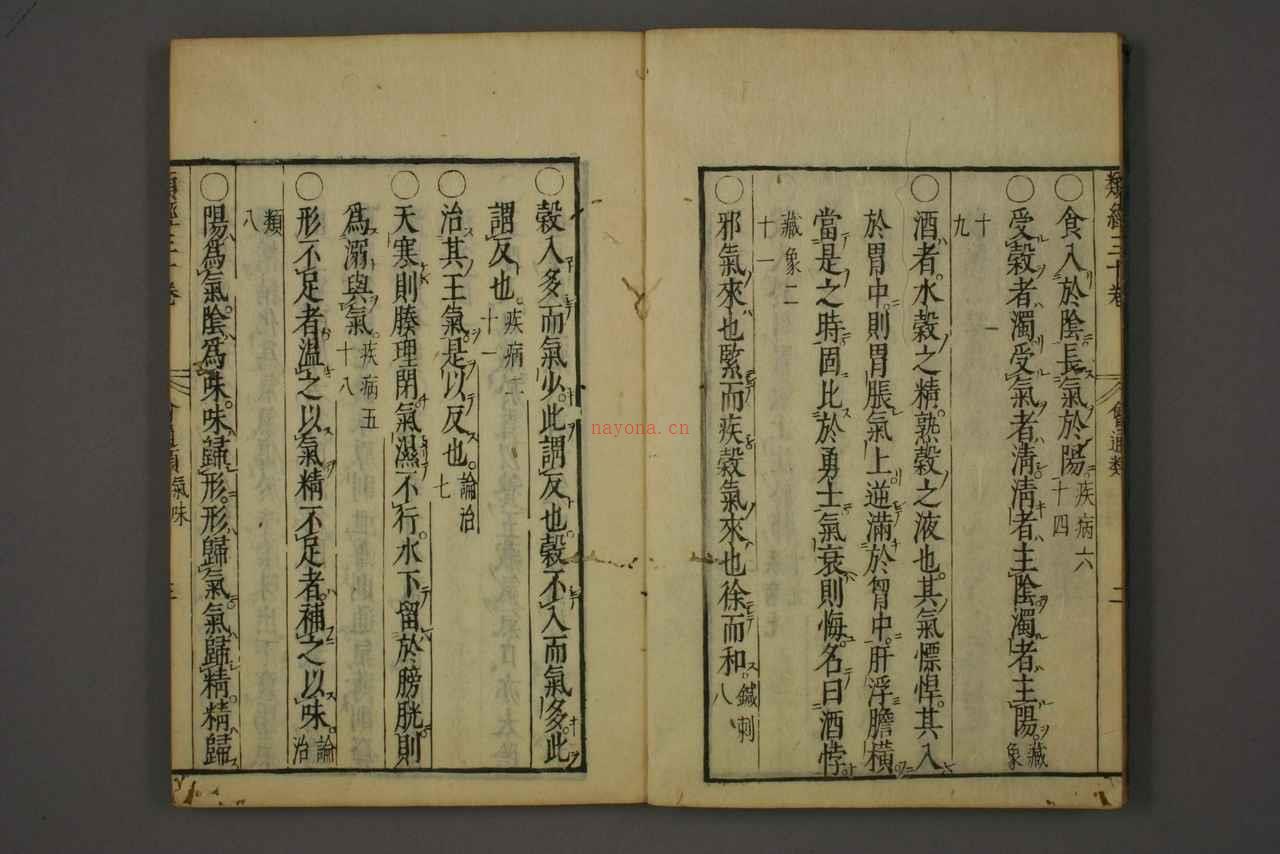 類經三十卷 會通類 二
○食入於陰長氣於陽。疾病六十四
○受穀者濁受氣者清清者主陰濁者主陽。藏象
十九
○酒者。水穀之精。熟穀之液也。其氣慓悍。其入
於胃中。則胃脹氣上逆滿於胷中。肝浮膽橫
當是之時固比於勇士氣衰則悔。名曰酒悖
藏象二十一
○邪氣來也緊而疾穀氣來也徐而和。鍼刺八
○穀入多而氣少。此謂反也。穀不入而氣多。此
謂反也。疾病二十一
○治其王氣。是以反也。論治七
○天寒則腠理閉氣濕不行。水下留於膀胱。則
爲溺與氣。疾病五十八
○形不足者溫之以氣精不足者。補之以味。論治
類八
○陽爲氣。陰爲味。味歸形。形歸氣氣歸精。精歸
類經三十卷 會通類氣味 三
nayona.cn